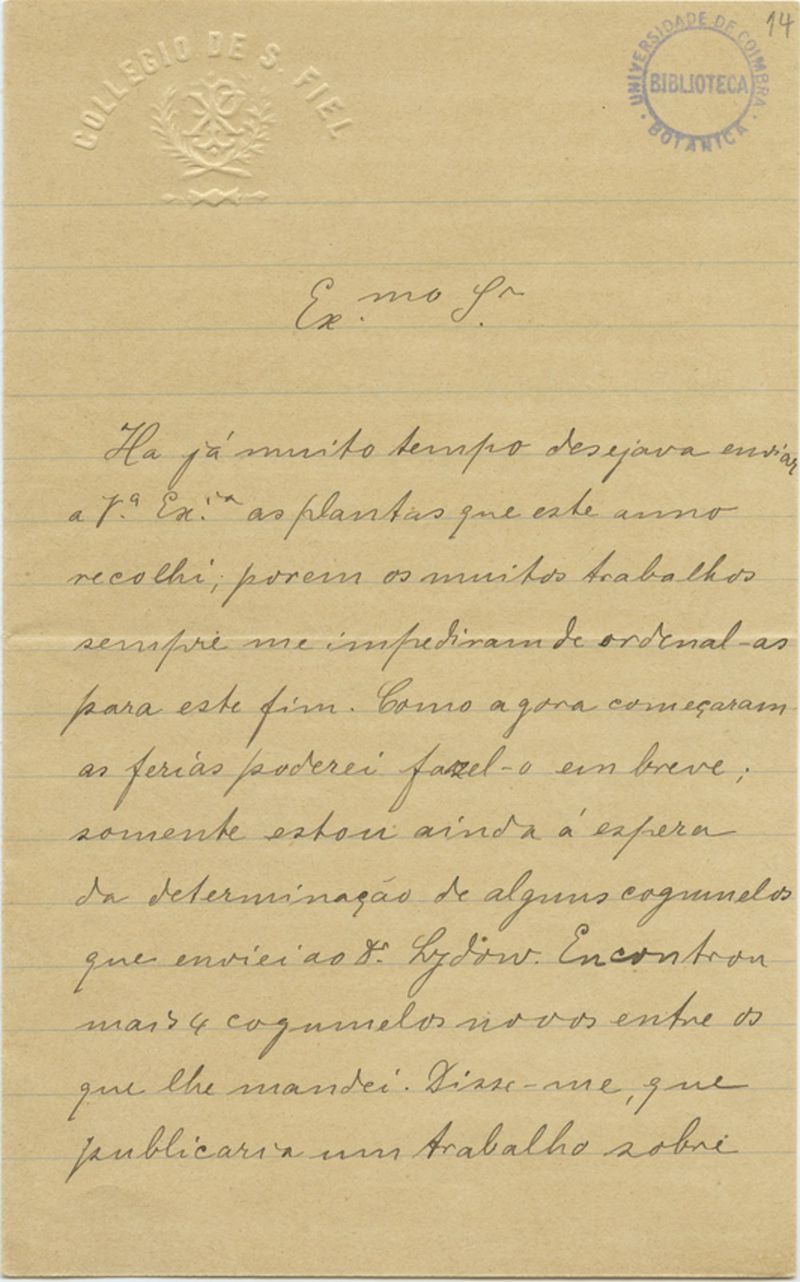 14
COLLEGIO DE S. FIEL
UNIVERSIDADE DE COIMBRA
BIBLIOTECA
BOTANICA
Ex.mo Sr.
Ha já muito tempo desejava enviar
a V.ª Ex.ia as plantas que este anno
recolhi; porem os muitos trabalhos
sempre me impediram de ordenal-as
para este fim. Como agora começaram
as ferias poderei fazel-o em breve;
somente estou ainda á espera
da determinação de alguns cogumelos
que enviei ao Dr. Sydow. Encontrou
mais 4 cogumelos novos entre os
que lhe mandei. Disse-me, que
publicaria um trabalho sobre